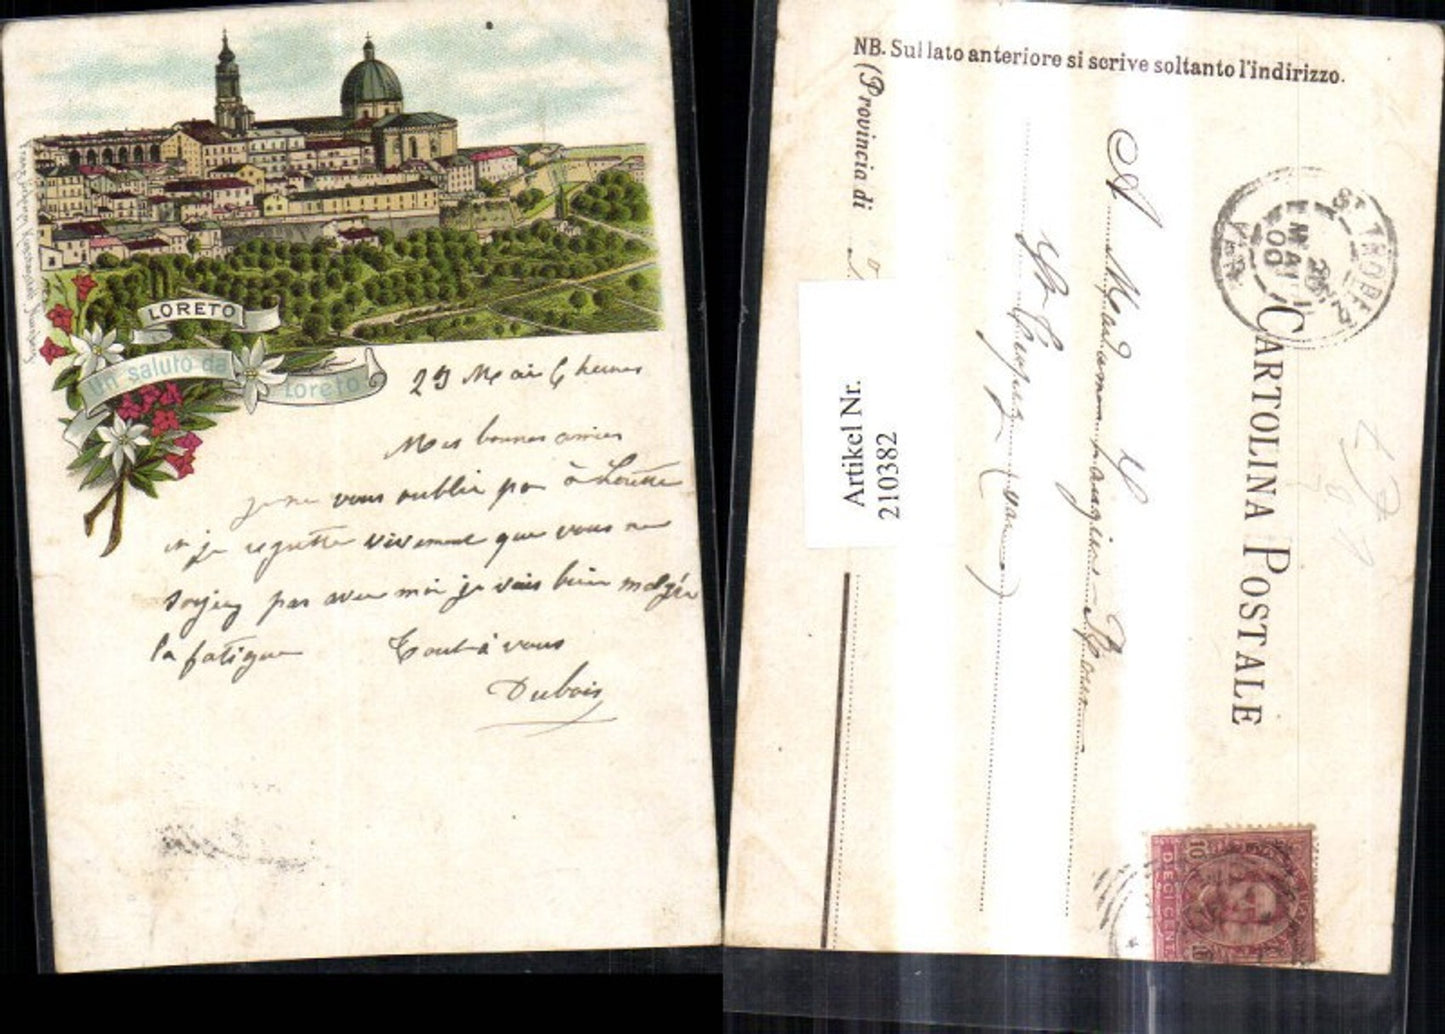 LORETO
Un saluto da
Loreto
29 Mai 6 heures
Mes bonnes amies
je ne vous oublie pas à Lorette
et je regrette vivement que vous ne
soyez pas avec moi je vais bien malgré
la fatigue Tout à vous
Dubois
NB. Sul lato anteriore si scrive soltanto l'indirizzo.
(Provincia di
CARTOLINA POSTALE
A Madame
St Tropez (Var)
ST TROPEZ
MAI
00
VAR
Artikel Nr.
210382
10 DIECI CENT 10